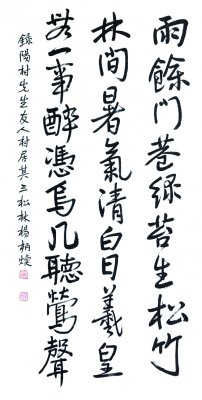 雨餘門巷綠苔生松竹
林間暑氣清白日羲皇
無一事醉憑烏几聽鶯聲
錄陽村先生友人村居其三松林楊柄